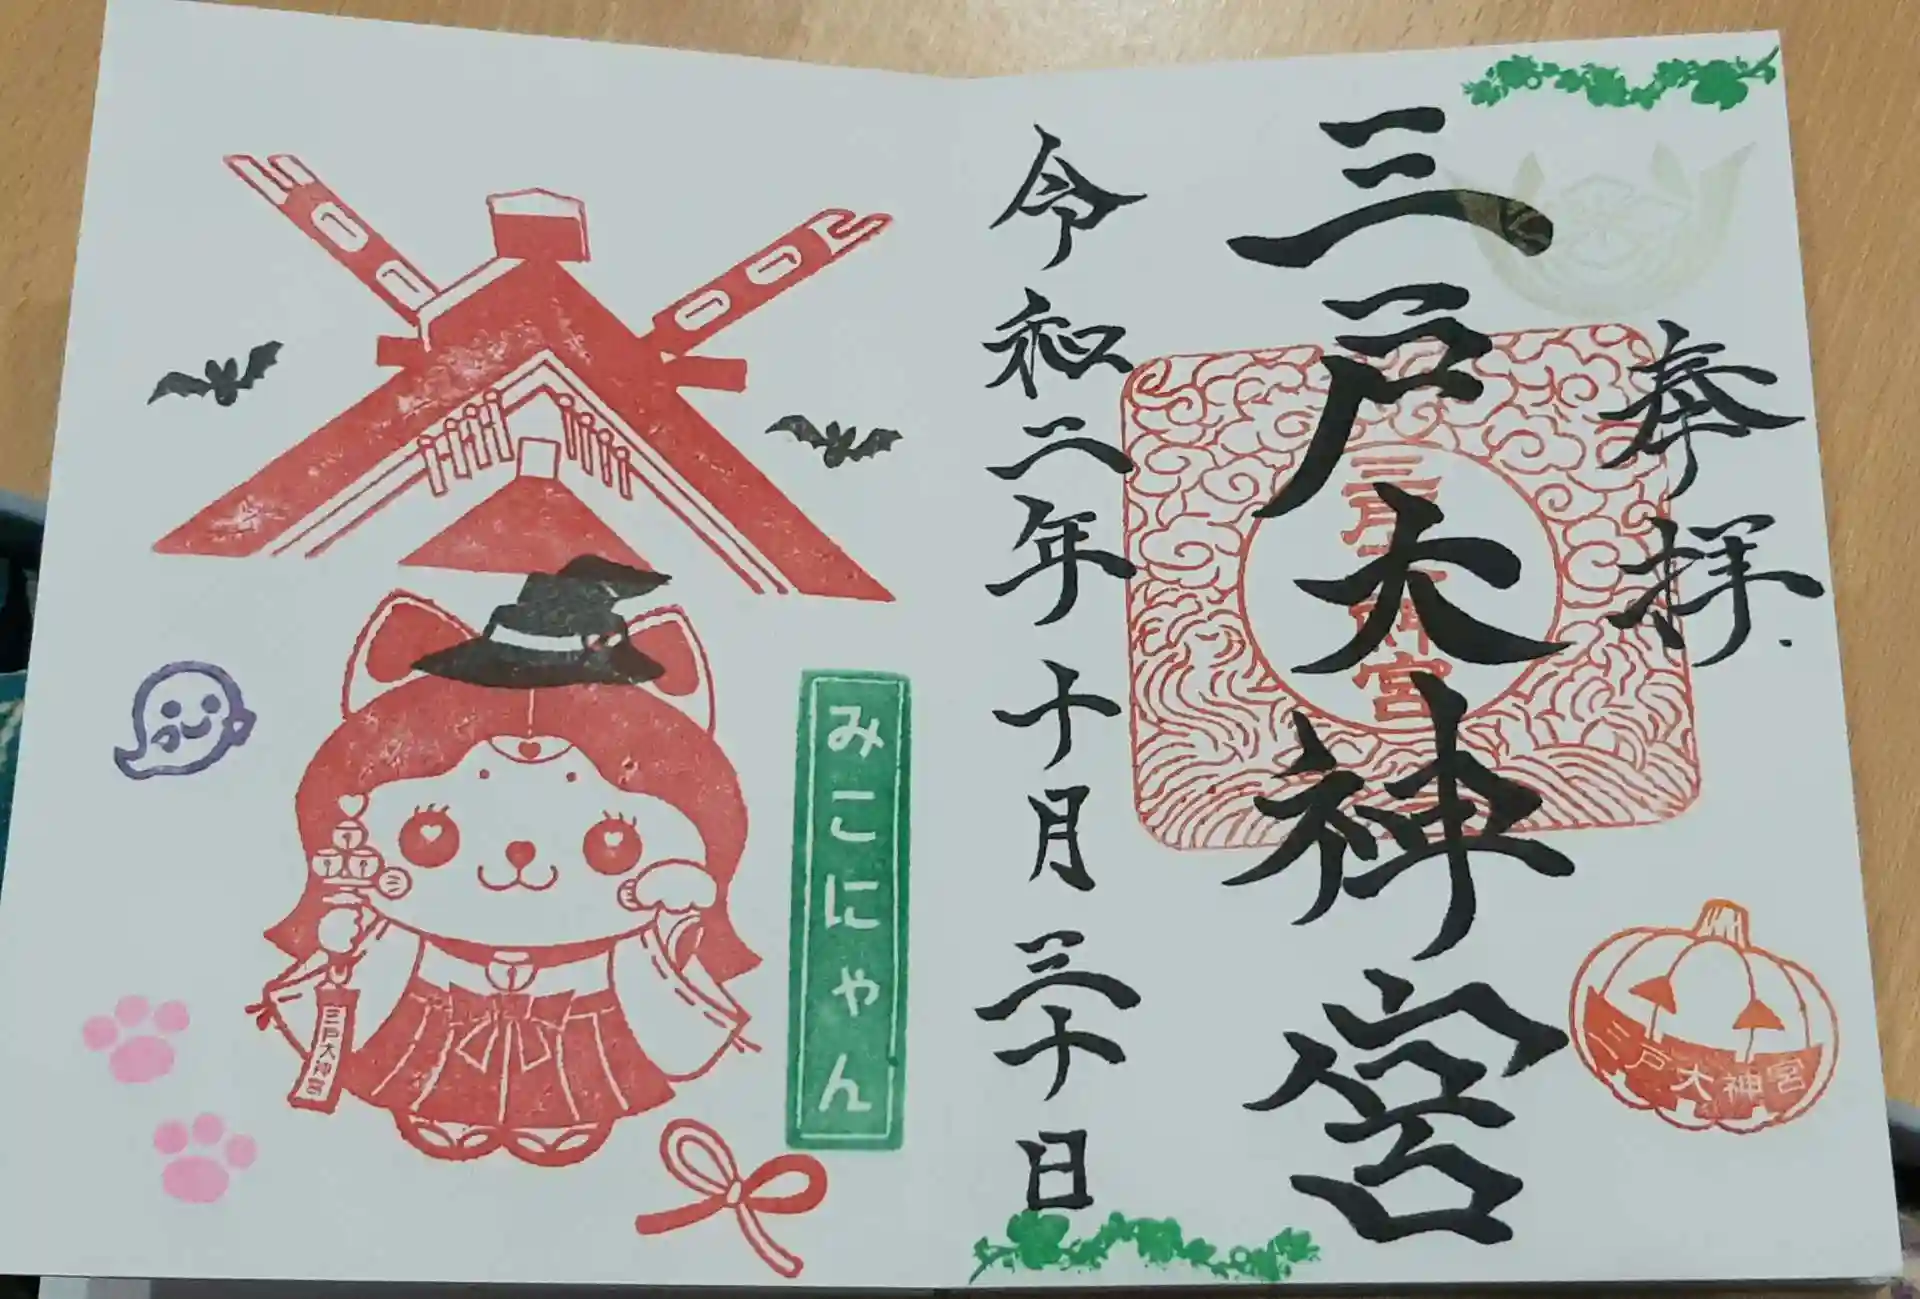 奉拝
三戸大神宮
三戸大神宮
令和二年十月三十日
三戸大神宮
みこにゃん
三戸大神宮